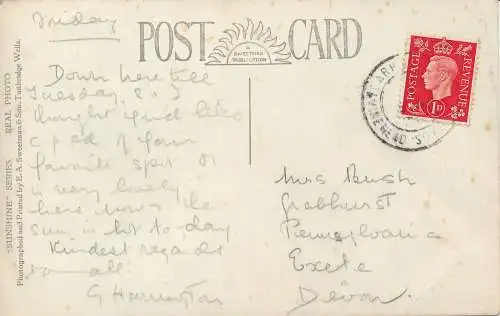 Friday
POST CARD
A SWEETMAN PUBLICATION
POSTAGE REVENUE
1D
Down here till
Tuesday, so I
thought you'd like
a p.c. of your
favorite spot. It
is very lovely
here now the
sun is hot to-day.
Kindest regards
to all.
G Harrington
Mrs Bush
Pennsylvania
Exeter
Devon.
"SUNSHINE" SERIES. REAL PHOTO
Photographed and Printed by E. A. Sweetman & Son, Tunbridge Wells.